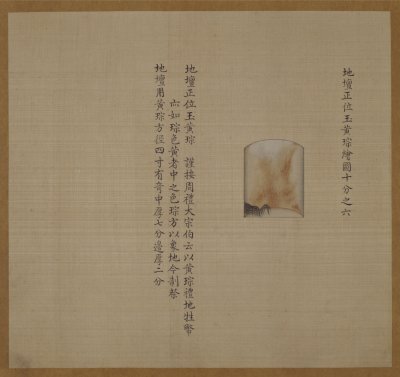 地壇正位玉黃琮繪圖十分之六
地壇正位玉黃琮 謹按周禮大宗伯云以黃琮禮地牲幣
亦如琮色黃者中之色琮方以象地今制祭
地壇用黃琮方徑四寸有奇中厚七分邊厚二分